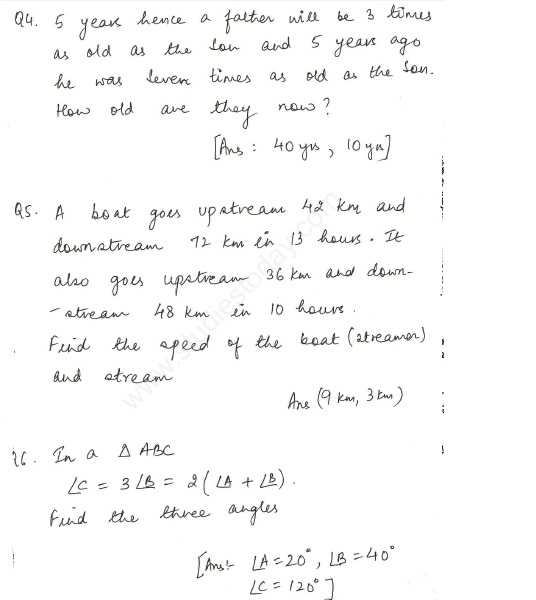 Q4. 5 years hence a father will be 3 times
as old as the son and 5 years ago
he was seven times as old as the son.
How old are they now?
[Ans: 40 yrs, 10 yrs]
Q5. A boat goes upstream 42 km and
downstream 72 km in 13 hours. It
also goes upstream 36 km and down-
-stream 48 km in 10 hours.
Find the speed of the boat (streamer)
and stream
Ans (9 km, 3 km)
Q6. In a △ ABC
∠C = 3∠B = 2(∠A + ∠B).
Find the three angles
[Ans:- ∠A = 20°, ∠B = 40°
∠C = 120°]
www.studiestoday.com